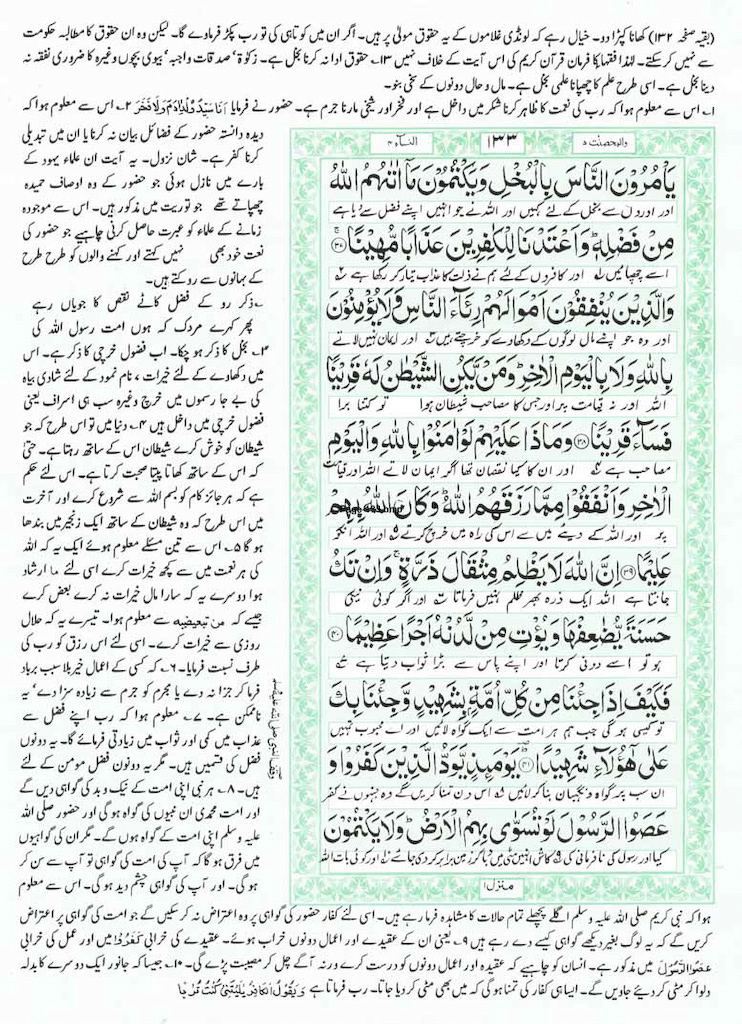 (بقیہ صفحہ ۱۳۲) کھانا کپڑا دو۔ خیال رہے کہ لونڈی غلاموں کے یہ حقوق مولیٰ پر ہیں۔ اگر ان میں کوتاہی کی تو رب پکڑ فرماوے گا۔ لیکن وہ ان حقوق کا مطالبہ حکومت
سے نہیں کر سکتے۔ لہٰذا فقہا کا فرمان قرآن کریم کی اس آیت کے خلاف نہیں ۱۳۔ حقوق ادا نہ کرنا بخل ہے۔ زکوٰۃ' صدقات واجبہ' بیوی بچوں وغیرہ کا ضروری نفقہ نہ
دینا بخل ہے۔ اسی طرح علم کا چھپانا علمی بخل ہے۔ مال و حال دونوں کے سخی بنو۔
۱۔ اس سے معلوم ہوا کہ رب کی نعمت کا ظاہر کرنا شکر میں داخل ہے اور فخر اور شیخی مارنا جرم ہے۔ حضور نے فرمایا اَنَا سَیِّدُ وُلْدِ اٰدَمَ وَلَا فَخْرَ ۲۔ اس سے معلوم ہوا کہ
دیدہ دانستہ حضور کے فضائل بیان نہ کرنا یا ان میں تبدیلی
کرنا کفر ہے۔ شان نزول۔ یہ آیت ان علماء یہود کے
بارے میں نازل ہوئی جو حضور کے وہ اوصاف حمیدہ
چھپاتے تھے جو توریت میں مذکور ہیں۔ اس سے موجودہ
زمانے کے علماء کو عبرت حاصل کرنی چاہیے جو حضور کی
نعت خود بھی نہیں کہتے اور کہنے والوں کو طرح طرح
کے بہانوں سے روکتے ہیں۔
ذکر رو کے فضل کاٹے نقص کا جویاں رہے
پھر کہے مردک کہ ہوں امت رسول اللہ کی
۳۔ بخل کا ذکر ہو چکا۔ اب فضول خرچی کا ذکر ہے۔ اس
میں دکھاوے کے لئے خیرات، نام نمود کے لئے شادی بیاہ
کی بے جا رسموں میں خرچ وغیرہ سب ہی اسراف یعنی
فضول خرچی میں داخل ہیں ۴۔ دنیا میں تو اس طرح کہ جو
شیطان کو خوش کرے شیطان اس کے ساتھ رہتا ہے۔ حتیٰ
کہ اس کے ساتھ کھاتا پیتا صحبت کرتا ہے۔ اس لئے حکم
ہے کہ ہر جائز کام کو بسم اللہ سے شروع کرے اور آخرت
میں اس طرح کہ وہ شیطان کے ساتھ ایک زنجیر میں بندھا
ہو گا ۵۔ اس سے تین مسئلے معلوم ہوئے ایک یہ کہ اللہ
کی ہر نعمت میں سے کچھ خیرات کرے اسی لئے ما ارشاد
ہوا دوسرے یہ کہ سارا مال خیرات نہ کرے بعض کرے
جیسے کہ من تبعیضیہ سے معلوم ہوا۔ تیسرے یہ کہ حلال
روزی سے خیرات کرے۔ اسی لئے اس رزق کو رب کی
طرف نسبت فرمایا۔ ۶۔ کہ کسی کے اعمال خیر بلا سبب برباد
فرما کر جزا نہ دے یا مجرم کو جرم سے زیادہ سزا دے' یہ
ناممکن ہے۔ ۷۔ معلوم ہوا کہ رب اپنے فضل سے
عذاب میں کمی اور ثواب میں زیادتی فرمائے گا۔ یہ دونوں
فضل کی قسمیں ہیں۔ مگر یہ دونوں فضل مومن کے لئے
ہیں۔ ۸۔ ہر نبی اپنی امت کے نیک و بد کی گواہی دیں گے
اور امت محمدی ان نبیوں کی گواہ ہو گی اور حضور صلی اللہ
علیہ وسلم اپنی امت کے گواہ ہوں گے۔ مگر ان کی گواہیوں
میں فرق ہو گا کہ آپ کی امت کی گواہی تو آپ سے سن کر
ہو گی۔ اور آپ کی گواہی چشم دید ہو گی۔ اس سے معلوم
والمحصنت ۵
۱۳۳
النسآء ۴
یَاْمُرُوْنَ النَّاسَ بِالْبُخْلِ وَیَكْتُمُوْنَ مَاۤ اٰتٰىهُمُ اللّٰهُ
اور اوروں سے بخل کے لئے کہیں اور اللہ نے جو انہیں اپنے فضل سے دیا ہے
مِنْ فَضْلِهٖؕ وَاَعْتَدْنَا لِلْكٰفِرِیْنَ عَذَابًا مُّهِیْنًا ﴿۳۷﴾
اسے چھپائیں اور کافروں کے لئے ہم نے ذلت کا عذاب تیار کر رکھا ہے
وَالَّذِیْنَ یُنْفِقُوْنَ اَمْوَالَهُمْ رِئَآءَ النَّاسِ وَلَا یُؤْمِنُوْنَ
اور وہ جو اپنے مال لوگوں کے دکھاوے کو خرچتے ہیں اور ایمان نہیں لاتے
بِاللّٰهِ وَلَا بِالْیَوْمِ الْاٰخِرِؕ وَمَنْ یَّكُنِ الشَّیْطٰنُ لَهٗ قَرِیْنًا
اللہ اور نہ قیامت پر اور جس کا مصاحب شیطان ہوا تو کتنا برا
فَسَآءَ قَرِیْنًا ﴿۳۸﴾ وَمَاذَا عَلَیْهِمْ لَوْ اٰمَنُوْا بِاللّٰهِ وَالْیَوْمِ
مصاحب ہے اور ان کا کیا نقصان تھا اگر ایمان لاتے اللہ اور قیامت
الْاٰخِرِ وَاَنْفَقُوْا مِمَّا رَزَقَهُمُ اللّٰهُؕ وَكَانَ اللّٰهُ بِهِمْ
پر اور اللہ کے دیئے میں سے اس کی راہ میں خرچ کرتے اور اللہ انکو
عَلِیْمًا ﴿۳۹﴾ اِنَّ اللّٰهَ لَا یَظْلِمُ مِثْقَالَ ذَرَّةٍۚ وَاِنْ تَكُ
جانتا ہے اللہ ایک ذرہ بھر ظلم نہیں فرماتا اور اگر کوئی نیکی
حَسَنَةً یُّضٰعِفْهَا وَیُؤْتِ مِنْ لَّدُنْهُ اَجْرًا عَظِیْمًا ﴿۴۰﴾
ہو تو اسے دونی کرتا اور اپنے پاس سے بڑا ثواب دیتا ہے
فَكَیْفَ اِذَا جِئْنَا مِنْ كُلِّ اُمَّةٍۭ بِشَهِیْدٍ وَّجِئْنَا بِكَ
تو کیسی ہو گی جب ہم ہر امت سے ایک گواہ لائیں اور اے محبوب تمہیں
عَلٰى هٰۤؤُلَآءِ شَهِیْدًا ﴿۴۱﴾ یَوْمَىِٕذٍ یَّوَدُّ الَّذِیْنَ كَفَرُوْا وَ
ان سب پر گواہ و نگہبان بنا کر لائیں اس دن تمنا کریں گے وہ جنہوں نے کفر
عَصَوُا الرَّسُوْلَ لَوْ تُسَوّٰى بِهِمُ الْاَرْضُؕ وَلَا یَكْتُمُوْنَ
کیا اور رسول کی نافرمانی کی کاش انہیں مٹی میں دبا کر زمین برابر کر دی جائے اور کوئی بات اللہ
منزل ۱
ہوا کہ نبی کریم صلی اللہ علیہ وسلم اگلے پچھلے تمام حالات کا مشاہدہ فرما رہے ہیں۔ اسی لئے کفار حضور کی گواہی پر وہ اعتراض نہ کر سکیں گے جو امت کی گواہی پر اعتراض
کریں گے کہ یہ لوگ بغیر دیکھے گواہی کیسے دے رہے ہیں ۹۔ یعنی ان کے عقیدے اور اعمال دونوں خراب ہوئے۔ عقیدے کی خرابی کَفَرُوْا میں اور عمل کی خرابی
عَصَوُا الرَّسُوْلَ میں مذکور ہے۔ انسان کو چاہیے کہ عقیدہ اور اعمال دونوں کو درست کرے ورنہ آگے چل کر مصیبت پڑے گی۔ ۱۰۔ جیسا کہ جانور ایک دوسرے کا بدلہ
دلوا کر مٹی کر دیئے جاویں گے۔ ایسا ہی کفار کی تمنا ہو گی کہ میں بھی مٹی کر دیا جاتا۔ رب فرماتا ہے وَیَقُوْلُ الْكَافِرُ یٰلَیْتَنِیْ كُنْتُ تُرٰبًا